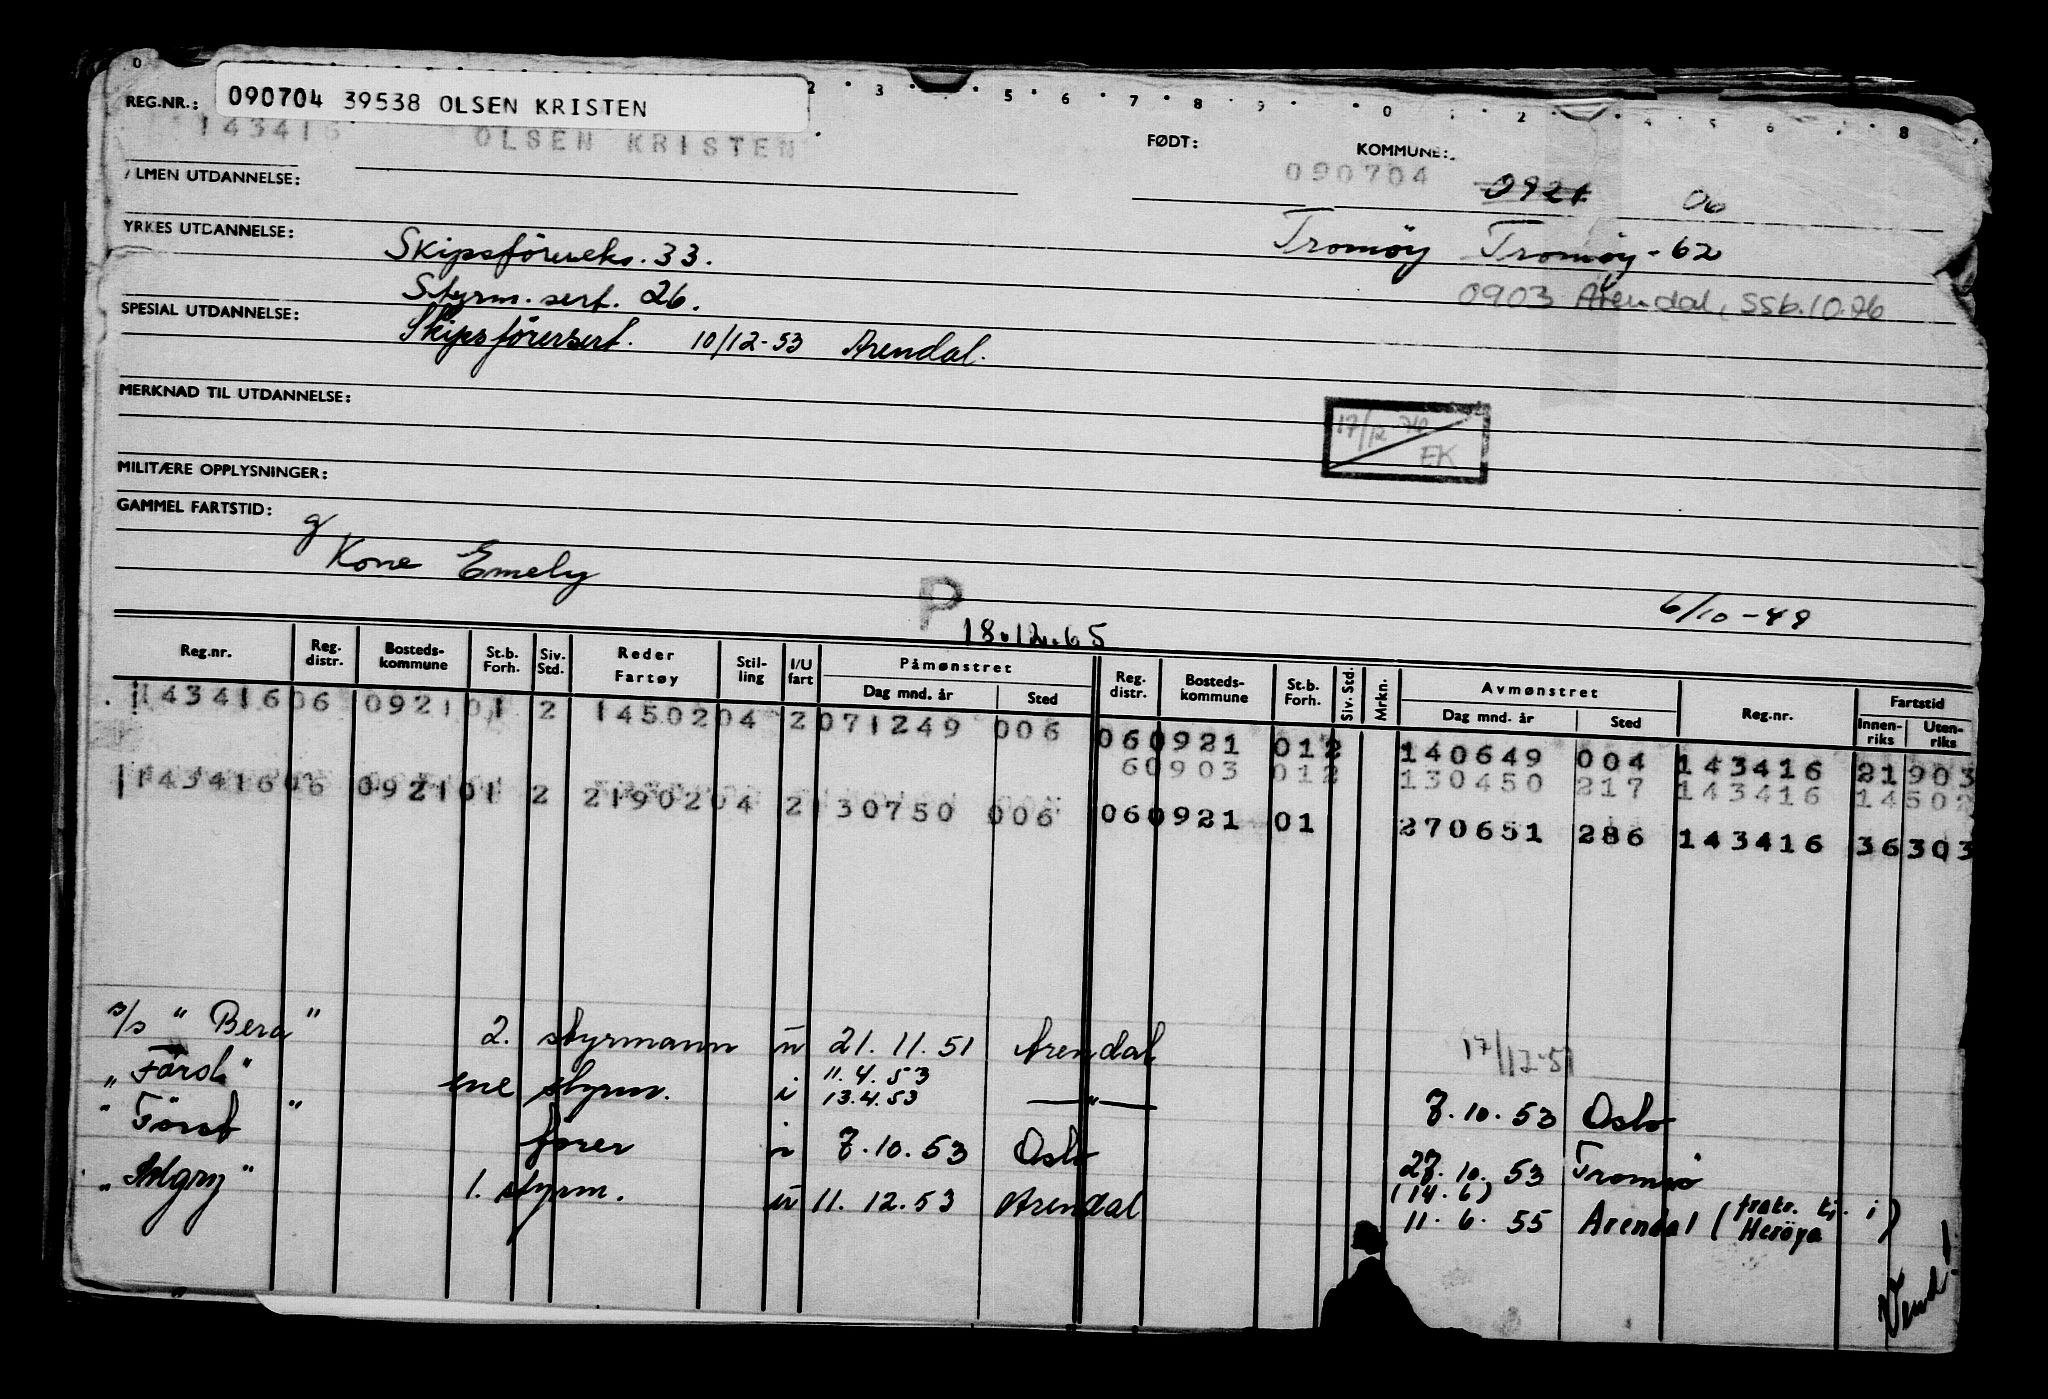 REG.NR.: 090704 39538 OLSEN KRISTEN
143416 OLSEN KRISTEN
FØDT: 090704 KOMMUNE: 0921 06
LMEN UTDANNELSE:
YRKES UTDANNELSE: Skipsføreeks. 33. Tromøy Tromøy - 62
Styrm. sert. 26. 0903 Arendal, SSb. 10.76
SPESIAL UTDANNELSE: Skipsførersert. 10/12-53 Arendal.
MERKNAD TIL UTDANNELSE:
17/12 EK
MILITÆRE OPPLYSNINGER:
GAMMEL FARTSTID: g
Kone Emely
P 18.12.65 6/10-49
Reg.nr. Reg. distr. Bosteds-kommune St.b. Forh. Siv. Std. Reder Fartøy Stil-ling I/U fart Påmønstret Dag mnd. år Sted Reg. distr. Bosteds-kommune St.b. Forh. Siv. Std. Mrkn. Avmønstret Dag mnd. år Sted Reg.nr. Fartstid Innen-riks Uten-riks
143416 06 0921 01 2 14502 04 2 071249 006 06 0921 012 140649 004 143416 21 903
6 0903 012 130450 217 143416 14502
143416 06 0921 01 2 21902 04 2 130750 006 06 0921 01 270651 286 143416 36 303
"Bera" 2. styrmann u 21.11.51 Arendal 17/12-51
" Førde" ene styrm. i 11.4.53 13.4.53 —"— 7.10.53 Oslo
" Först " fører i 7.10.53 Oslo 27.10.53 Tromsö
" 1. styrm. u 11.12.53 Arendal (14.6) 11.6.55 Arendal (fratr. i Heröya)
Vend!